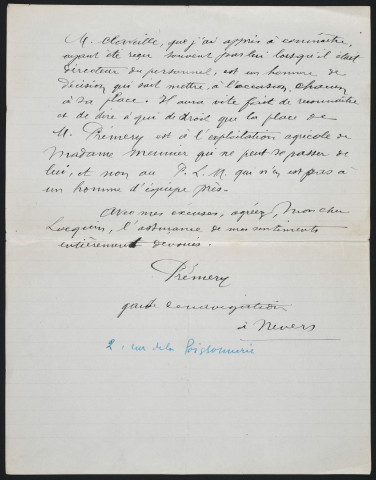 M. Claveille, que j'ai appris à connaître,
ayant été reçu souvent par lui lorsqu'il était
Directeur du personnel, est un homme de
décision qui sait mettre, à l'occasion, chacun
à sa place. Il aura vite fait de reconnaître
et de dire à qui de droit que la place de
M. Prémery est à l'exploitation agricole de
Madame Meunier qui ne peut se passer de
lui, et non au P. L. M. qui n'en est pas à
un homme d'équipe près.
Avec mes excuses, agréez, mon cher
Locquin, l'assurance de mes sentiments
entièrement dévoués.
Prémery
garde de navigation
à Nevers
2, rue de la Poissonnerie